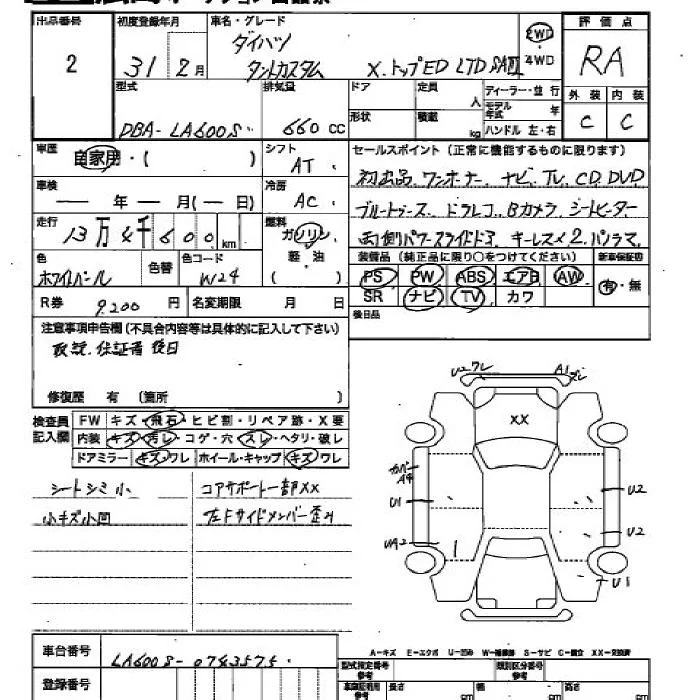 出品番号 初度登録年月 車名・グレード 評価点
2 31 2月 ダイハツ 2WD RA
タントカスタム X.トップED LTD SAⅢ 4WD
型式 排気量 ドア 定員 人 ディーラー・並行 外装 内装
DBA-LA600S 660 CC 形状 積載 kg モデル年式 年 C C
ハンドル 左・右
車歴 自家用・( ) シフト AT セールスポイント (正常に機能するものに限ります)
車検 — 年 — 月(— 日) 冷房 AC 初出品、ワンオーナー、ナビ、TV、CD、DVD
ブルートゥース、ドラレコ、Bカメラ、シートヒーター
走行 13万4千600km 燃料 ガソリン 両側パワースライドドア、キーレス×2、パノラマ、
軽・油 ( )
色 ホワイトパール 色替 色コード W24 装備品 (純正品に限り○をつけてください) 新車保証書
PS PW ABS エアB AW 有・無
R券 9200円 名変期限 月 日 SR ナビ TV カワ
後日品
注意事項申告欄 (不具合内容等は具体的に記入して下さい)
取説、保証書 後日
修復歴 有 (箇所 )
検査員記入欄 FW キズ・飛石・ヒビ割・リペア跡・X要
内装 キズ・汚レ・コゲ・穴・スレ・ヘタリ・破レ
ドアミラー キズ・ワレ ホイール・キャップ キズ・ワレ
シートシミ小 コアサポート一部XX
小キズ小凹 左Fサイドメンバー歪ミ
U2ワレ A1
XX
カバー A4
U1 U2
UA2 U2
U1
A-キズ E-エクボ U-凹み W-補修跡 S-サビ C-腐食 XX-交換済
車台番号 LA600S-0743575
型式指定番号 類別区分番号
登録番号 長さ cm 幅 cm 高さ cm